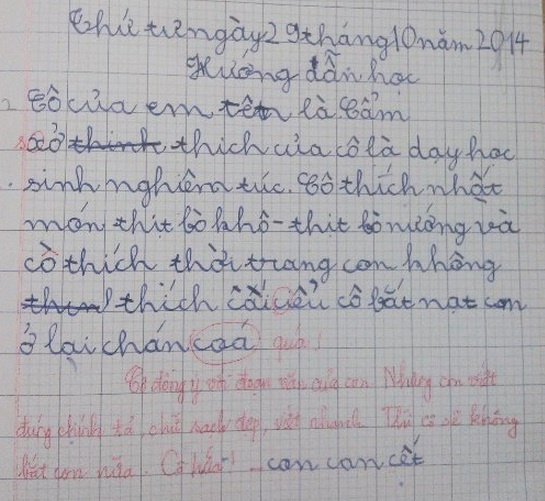 Thứ tư ngày 29 tháng 10 năm 2014
Hướng dẫn học
Cô của em tên là Cẩm
Sở thích của cô là dạy học
sinh nghiêm túc. Cô thích nhất
món thịt bò khô - thịt bò nướng và
cò thích thời trang con không
thích cái kiểu cô bắt nạt con
ở lại chán coá quá!
Cô đồng ý với đoạn văn của con. Nhưng con viết
đúng chính tả, chữ sạch đẹp, viết nhanh. Thì cô sẽ không
bắt con nữa. Cô hứa! con can cết